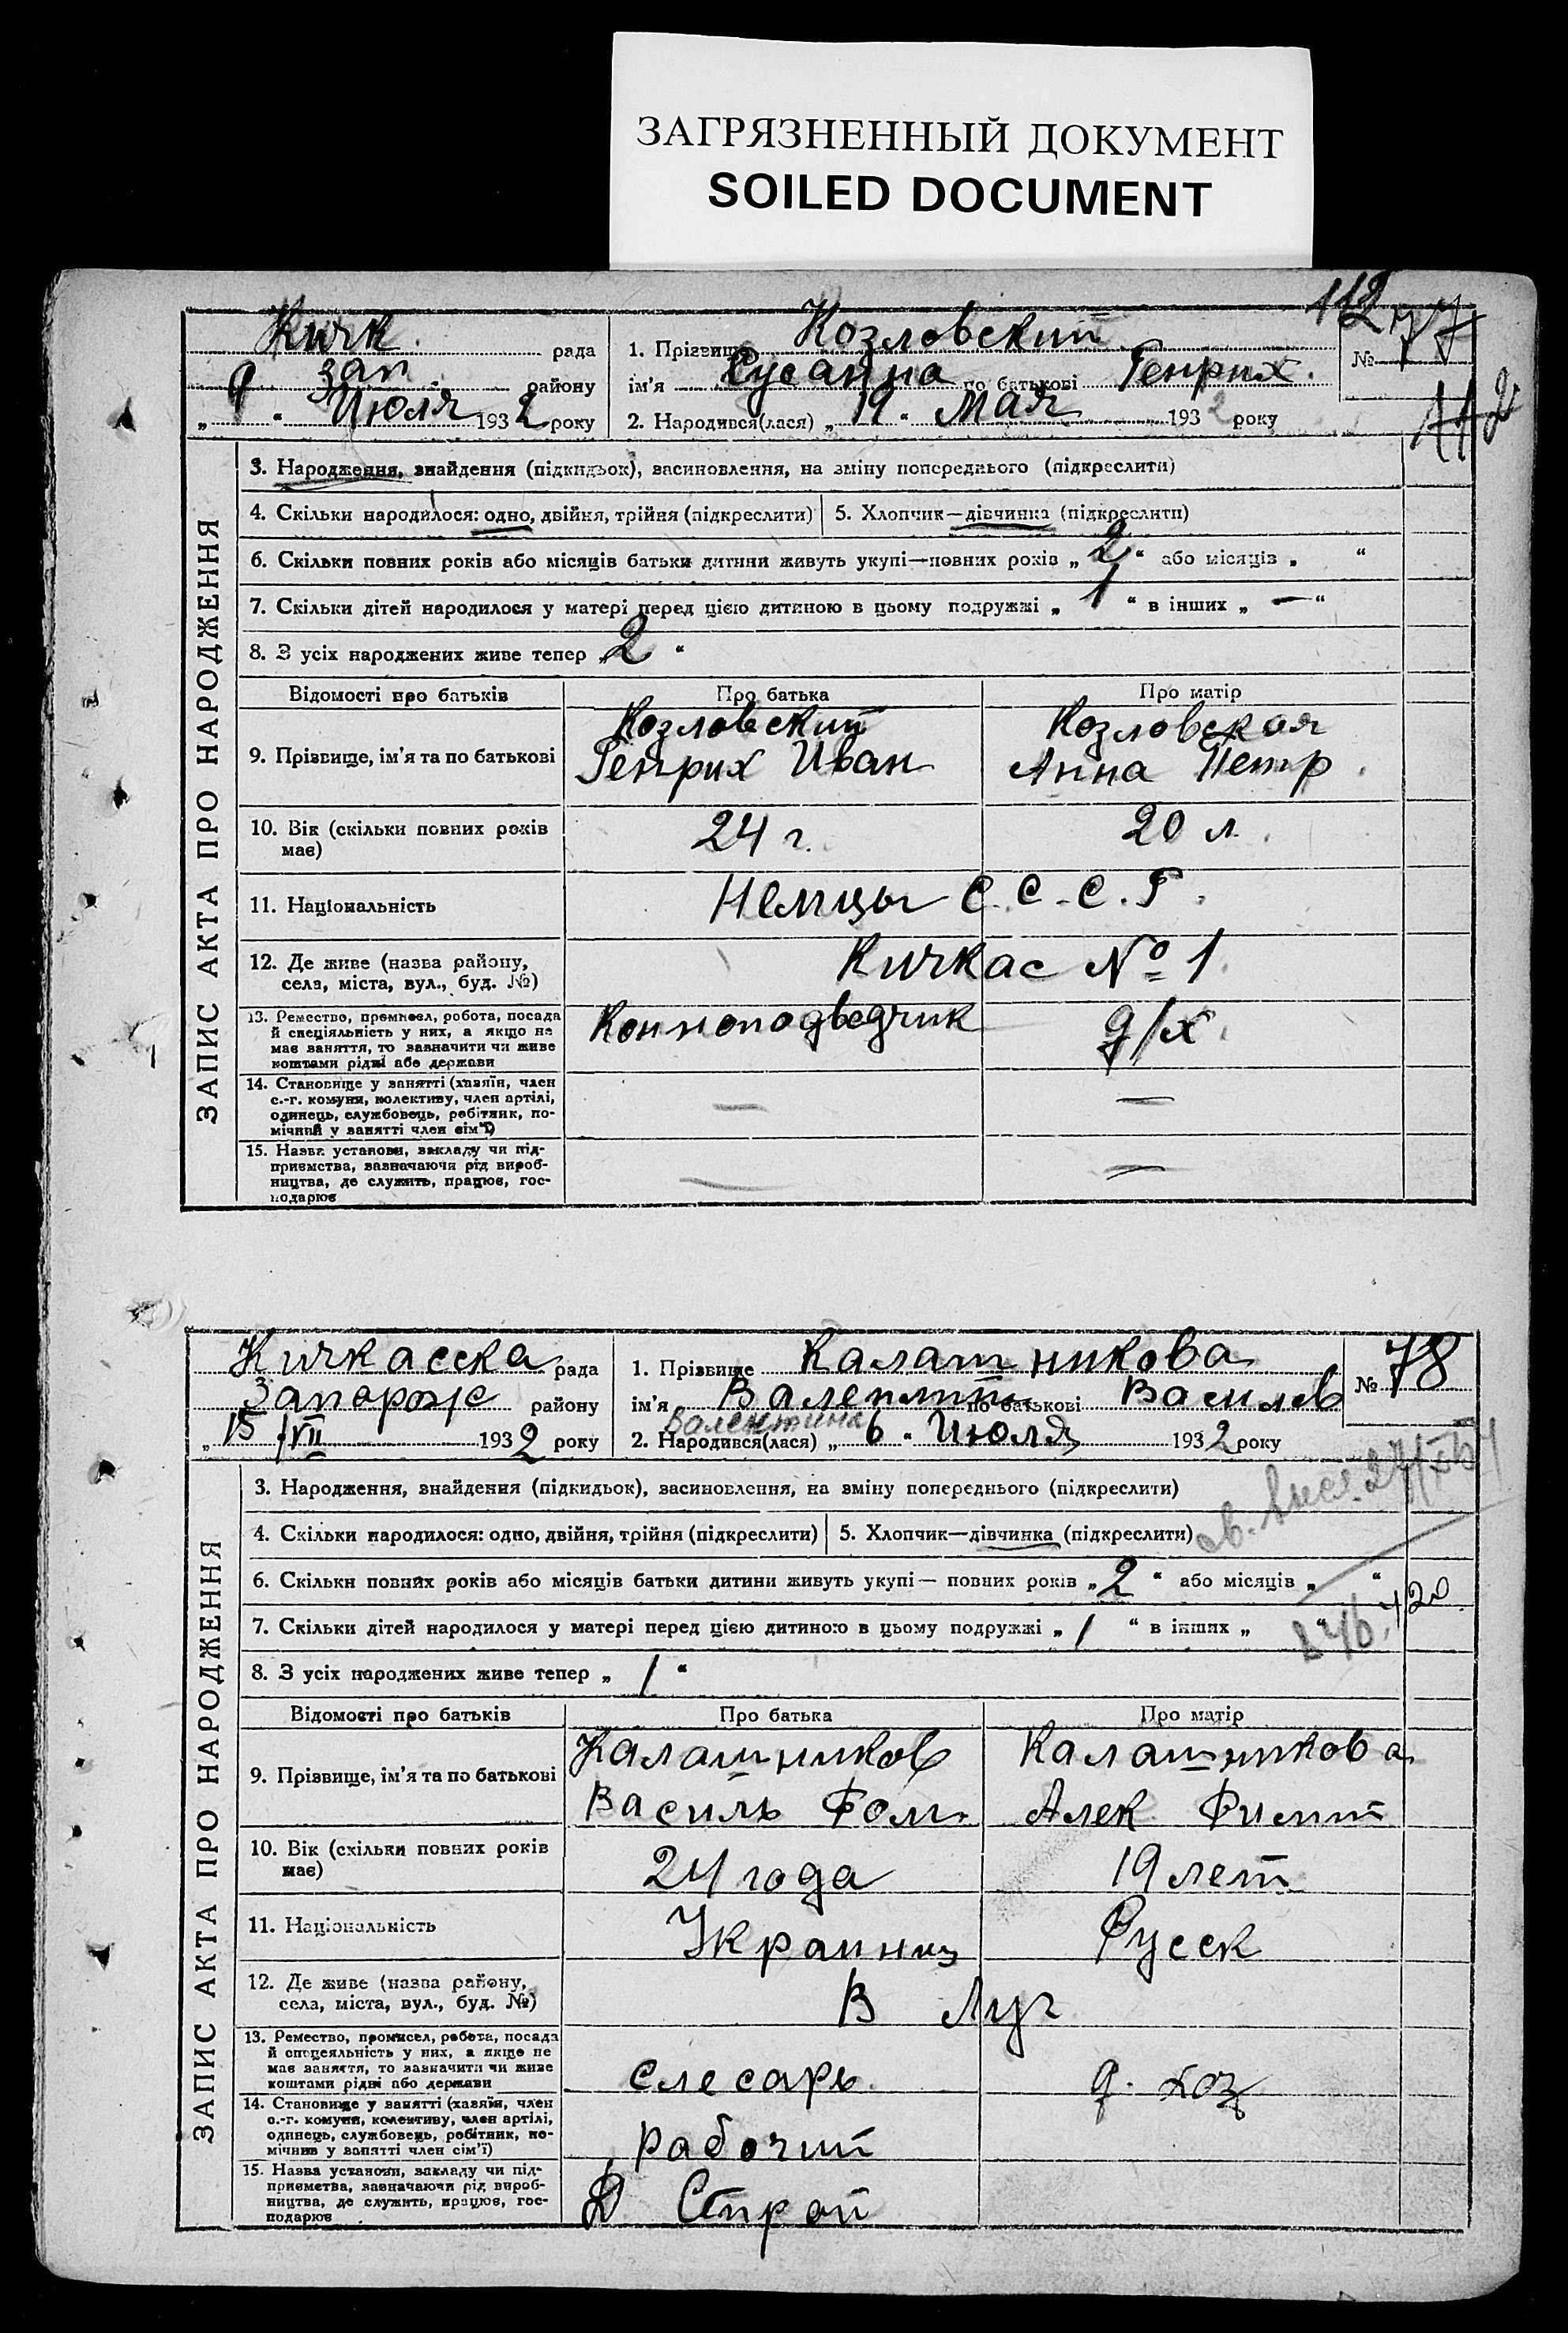 ЗАГРЯЗНЕННЫЙ ДОКУМЕНТ
SOILED DOCUMENT
112
Кичк. рада
зап. району
„ 9 “ Июля 1932 року
1. Прізвище Козловский
ім'я Сусанна по батькові Генрих.
2. Народився(лася) „ 19 “ Мая 1932 року
№ 77
112
ЗАПИС АКТА ПРО НАРОДЖЕННЯ
3. Народження, знайдення (підкидьок), васиновлення, на зміну попереднього (підкреслити)
4. Скільки народилося: одно, двійня, трійня (підкреслити) 5. Хлопчик—дівчинка (підкреслити)
6. Скільки повних років або місяців батьки дитини живуть укупі—повних років „ 2 “ або місяців „ “
7. Скільки дітей народилося у матері перед цією дитиною в цьому подружжі „ 1 “ в інших „ — “
8. З усіх народжених живе тепер „ 2 “
Відомості про батьків Про батька Про матір
9. Прізвище, ім'я та по батькові
Козловский
Генрих Иван
Козловская
Анна Петр.
10. Вік (скільки повних років
має)
24 г. 20 л.
11. Національність Немцы С.С.С.Р.
12. Де живе (назва району,
села, міста, вул., буд. №)
Кичкас № 1.
13. Ремество, промисел, робота, посада
й спеціяльність у них, а якщо не
має заняття, то зазначити чи живе
коштами рідні або держави
Конноподведчик д/х.
14. Становище у занятті (хазяїн, член
с.-г. комуни, колективу, член артілі,
одинець, службовець, робітник, по-
мічний у занятті член сім'ї)
— —
15. Назва установи, закладу чи під-
приємства, зазначаючи рід вироб-
ництва, де служить, працює, гос-
подарює
— —
Кичкасска рада
Запорож району
„ 15/VII 1932 року
1. Прізвище Калашникова
ім'я Валентин по батькові Василев
Валентина
2. Народився(лася) „ 6 “ Июля 1932 року
№ 78
ЗАПИС АКТА ПРО НАРОДЖЕННЯ
3. Народження, знайдення (підкидьок), васиновлення, на зміну попереднього (підкреслити)
4. Скільки народилося: одно, двійня, трійня (підкреслити) 5. Хлопчик—дівчинка (підкреслити)
6. Скільки повних років або місяців батьки дитини живуть укупі— повних років „ 2 “ або місяців „ “
7. Скільки дітей народилося у матері перед цією дитиною в цьому подружжі „ 1 “ в інших „ “
8. З усіх народжених живе тепер „ 1 “
Відомості про батьків Про батька Про матір
9. Прізвище, ім'я та по батькові
Калашников
Василь Фом.
Калашникова
Алек
10. Вік (скільки повних років
має)
24 года 19 лет
11. Національність Украинц Русск
12. Де живе (назва району,
села, міста, вул., буд. №)
В Луг
13. Ремество, промисел, робота, посада
й спецеяльність у них, а якщо не
має заняття, то зазначити чи живе
коштами рідні або держави
Слесарь. д. хоз
14. Становище у занятті (хазяїн, член
с.-г. комуни, колективу, член артілі,
одинець, службовець, робітник, по-
мічник у занятті член сім'ї)
рабочий
15. Назва установи, закладу чи під-
приємства, зазначаючи рід вироб-
ництва, де служить, працює, гос-
подарює
Д Строй